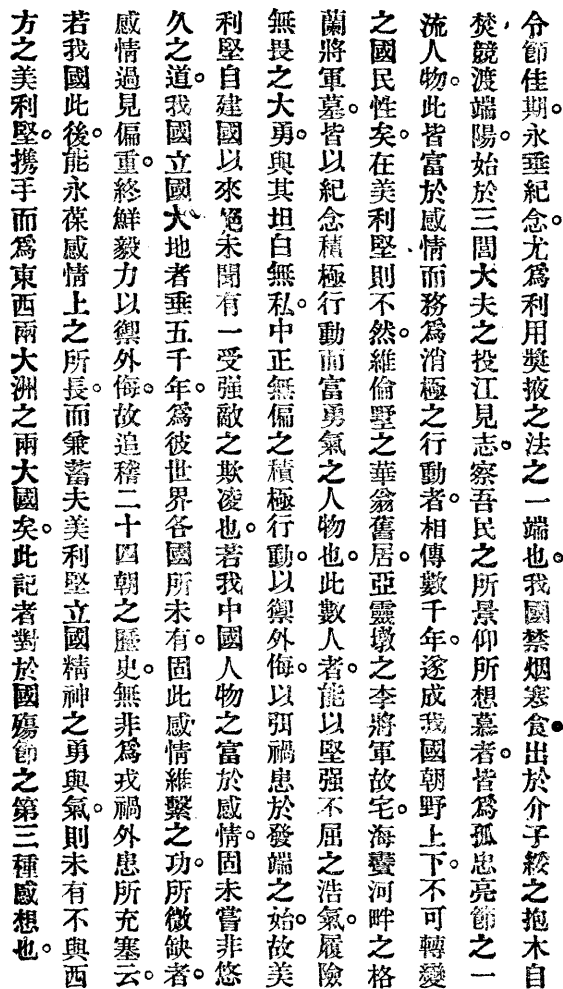 令節佳期。永垂紀念。尤爲利用奬掖之法之一端也。我國禁烟寒食。出於介子綏之抱木自
焚。競渡端陽。始於三閭大夫之投江見志。察吾民之所景仰所想慕者。皆爲孤忠亮節之一
流人物。此皆富於感情而務爲消極之行動者。相傳數千年。遂成我國朝野上下。不可轉變
之國民性矣。在美利堅則不然。維倫墅之華翁舊居。亞靈墩之李將軍故宅。海蠥河畔之格
蘭將軍墓。皆以紀念積極行動而富勇氣之人物也。此數人者。能以堅强不屈之浩氣。履險
無畏之大勇。與其坦白無私。中正無偏之積極行動。以禦外侮。以弭禍患於發端之始。故美
利堅自建國以來。絕未聞有一受强敵之欺凌也。若我中國人物之富於感情。固未嘗非悠
久之道。我國立國大地者垂五千年。爲彼世界各國所未有。固此感情維繫之功。所微缺者。
感情過見偏重。終鮮毅力以禦外侮。故追稽二十四朝之歷史。無非爲戎禍外患所充塞云。
若我國此後。能永葆感情上之所長。而兼蓄夫美利堅立國精神之勇與氣。則未有不與西
方之美利堅。携手而爲東西兩大洲之兩大國矣。此記者對於國殤節之第三種感想也。